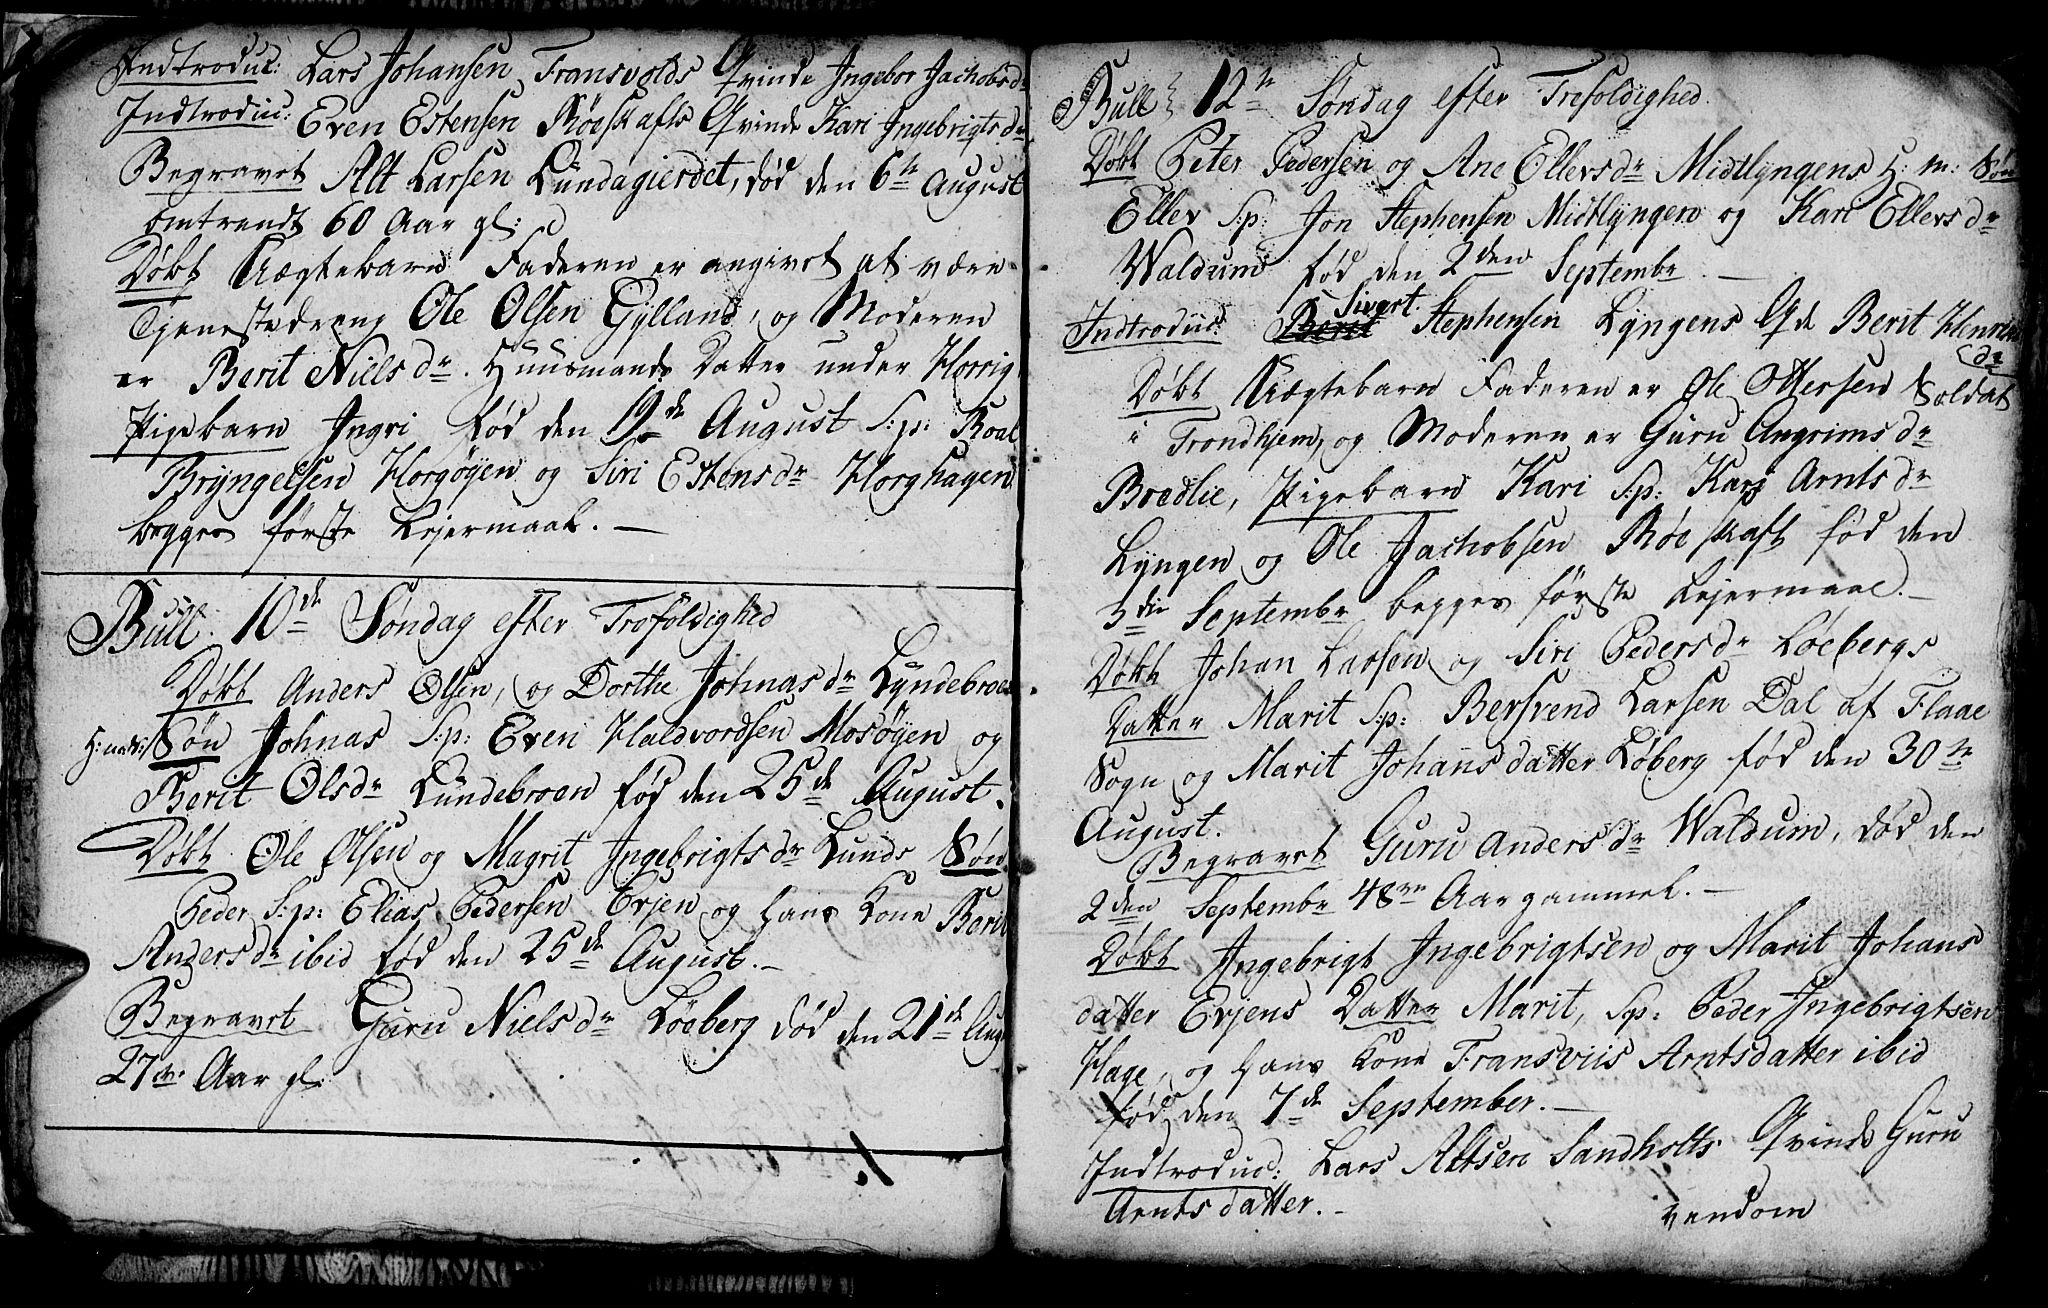 Indtroduc: Lars Johansen Fransvolds Qvinde Ingebor Jachobsdr
Indtroduc: Even Estensen Røeskafts Qvinde Kari Ingebrigtsdr
Begravet Alt Larsen Lundagierdet, død den 6te August
omtrendt 60 Aar gl:
Døbt Uægtebarn Faderen er angivet at være
Tjenestedreng Ole Olsen Gylland, og Moderen
er Berit Nielsdr. Huusmands Datter under Horrig
Pigebarn Ingri fød den 19de August S:p: Roal
Bryngelsen Horgøyen og Siri Estensdr Horghagen
begges første Lejermaal. —
Bull. 10de Søndag efter Trefoldighed
Døbt Anders Olsen, og Dorthe Johnasdr Lyndebroen
H:mds: Søn Johnas S:p: Even Haldvordsen Mosøyen og
Berit Olsdr Lundebroen fød den 25de August.
Døbt Ole Olsen og Magrit Ingebrigtsdr Lunds Søn
Peder S:p: Elias Pedersen Evjen og hans Kone Berit
Andersdr ibid fød den 25de August. —
Begravet Guru Nielsdr Løeberg død den 21de Aug
27ve Aar gl:
Bull 12te Søndag efter Trefoldighed.
Døbt Peter Pedersen og Ane Ellevsdr Midtlyngens H: m: Søn
Ellev S:p: Jon Stephensen Midtlyngen og Kari Ellevsdr
Waldum fød den 2den Septembr. —
Indtroduc: Berit Sivert Stephensen Lyngens Qde Berit Henrichsdr
Døbt Uægtebarn Faderen er Ole Ottersen Soldat
i Trondhjem, og Moderen er Guru Angrimsdr
Bredlie, Pigebarn Kari S:p: Kari Arntsdr
Lyngen og Ole Jachobsen Røeskaft fød den
3die Septembr begges første Lejermaal. —
Døbt Johan Larsen og Siri Pedersdr Løebergs
Datter Marit S:p: Bersvend Larsen Dal af Flaae
Sogn og Marit Johansdatter Løberg fød den 30te
August.
Begravet Guru Andersdr Waldum, død den
2den Septembr 48ve Aar gammel. —
Døbt Ingebrigt Ingebrigtsen og Marit Johans
datter Evjens Datter Marit, S:p: Peder Ingebrigtsen
Hage, og hans Kone Fransviis Arntsdatter ibid
fød den 7de September. —
Indtroduc: Lars Altsen Sandholts Qvinde Guru
Arntsdatter. —
vendom